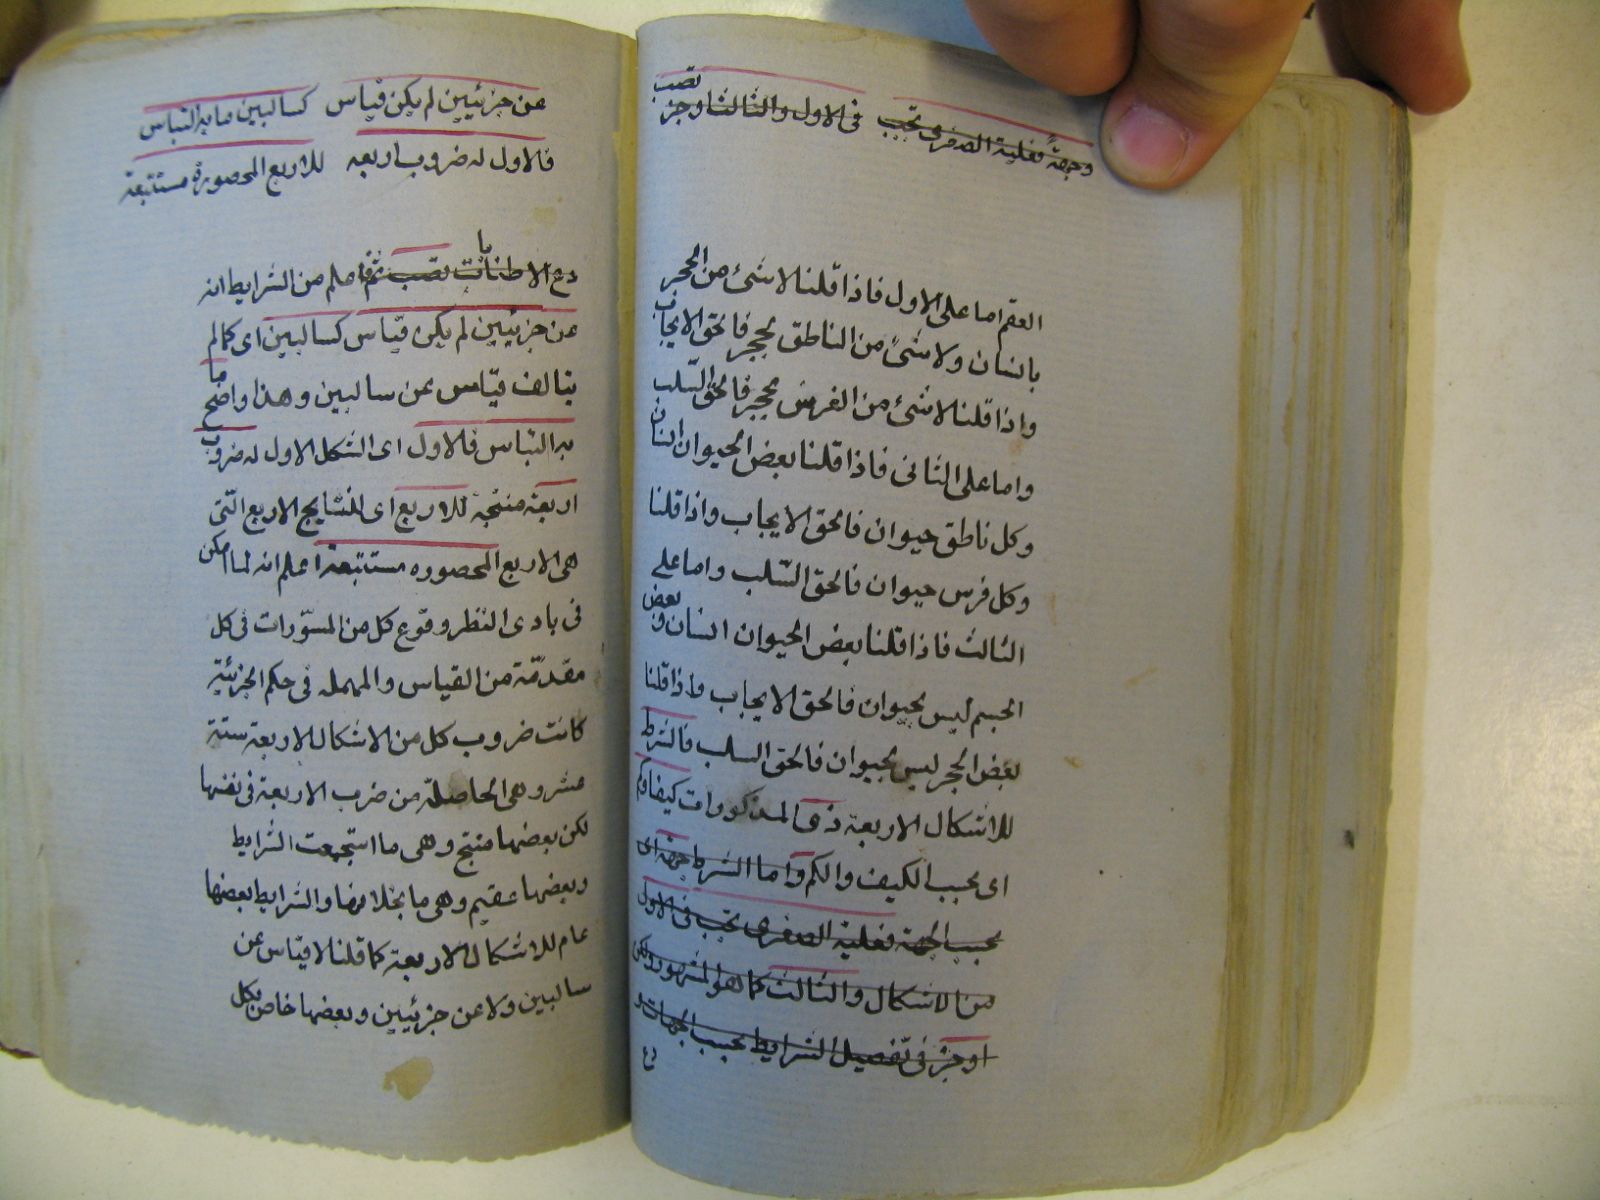 وجهة فعلية الصغرى تجب في الاول والثالث واوجز
تصب
العقم اما على الاول فاذا قلنا لا شئ من الحجر
بانسان ولا شئ من الناطق بحجر فالحق الايجاب
واذا قلنا لا شئ من الفرس بحجر فالحق السلب
واما على الثانى فاذا قلنا بعض الحيوان انسان
وكل ناطق حيوان فالحق الايجاب واذا قلنا
وكل فرس حيوان فالحق السلب واما على
الثالث فاذا قلنا بعض الحيوان انسان وبعض
الجسم ليس بحيوان فالحق الايجاب واذا قلنا
بعض الحجر ليس بحيوان فالحق السلب فالشرط
للاشكال الاربعة ذى المذكورات كيفا وكم
اى بحسب الكيف والكم واما الشرط جهة اى
بحسب الجهة فعلية الصغرى تجب فى الاول
من الاشكال والثالث كما هو المشهور ولكن
اوجز فى تفصيل الشرايط بحسب الجهات و
دع
عن جزئيين لم يكن قياس كسالبين ما به التباس
فالاول له ضروب اربعه للاربع المحصورة مستتبعة
دع الاطنابات تصب ثم اعلم من الشرايط انه
عن جزئيين لم يكن قياس كسالبين اى كما لم
يتالف قياس عن سالبين وهذا واضح ما
به التباس فالاول اى الشكل الاول له ضروب
اربعة منتجة للاربع اى للنتايج الاربع التى
هى الاربع المحصوره مستتبعة اعلم انه لما امكن
فى بادى النظر وقوع كل من المسورات فى كل
مقدمة من القياس والمهمله فى حكم الجزئية
كانت ضروب كل من الاشكال الاربعة ستة
عشر وهى الحاصلة من ضرب الاربعة فى نفسها
لكن بعضها منتج وهى ما استجمعت الشرايط
وبعضها عقيم وهى ما بخلافها والشرايط بعضها
عام للاشكال الاربعة كما قلنا لا قياس عن
سالبين ولا عن جزئيين وبعضها خاص بكل